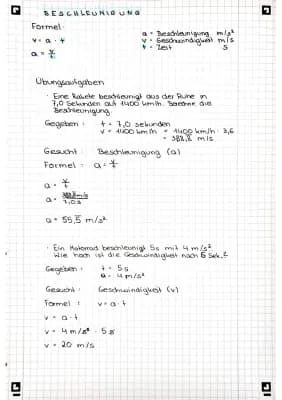 BESCHLEUNIGUNG
Formel:
v = a · t
a = v/t
a = Beschleunigung m/s²
v = Geschwindigkeit m/s
t = Zeit s
Übungsaufgaben
· Eine Rakete beschleunigt aus der Ruhe in
7,0 Sekunden auf 1400 km/h. Berechne die
Beschleunigung.
Gegeben : t = 7,0 sekunden
v = 1400 km/h = 1400 km/h : 3,6
= 388,8 m/s
Gesucht : Beschleunigung (a)
Formel : a = v/t
a = v/t
a = 388,8 m/s / 7,0 s
a = 55,5 m/s²
· Ein Motorrad beschleunigt 5s mit 4 m/s²
Wie hoch ist die Geschwindigkeit nach 5 Sek.?
Gegeben : t = 5s
a = 4 m/s²
Gesucht : Geschwindigkeit (v)
Formel : v = a · t
v = a · t
v = 4 m/s² · 5s
v = 20 m/s